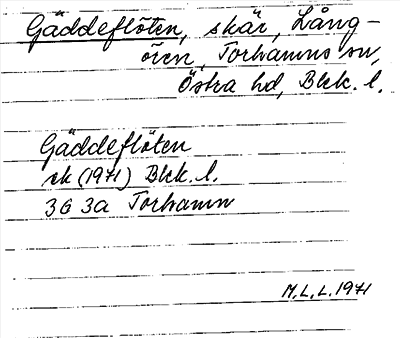 Gäddeflöten, skär, Lång-
ören, Torhamns sn,
Östra hd, Blek. l.
Gäddeflöten
ek (1971) Blek. l.
3G 3a Torhamn
M.L.L. 1971